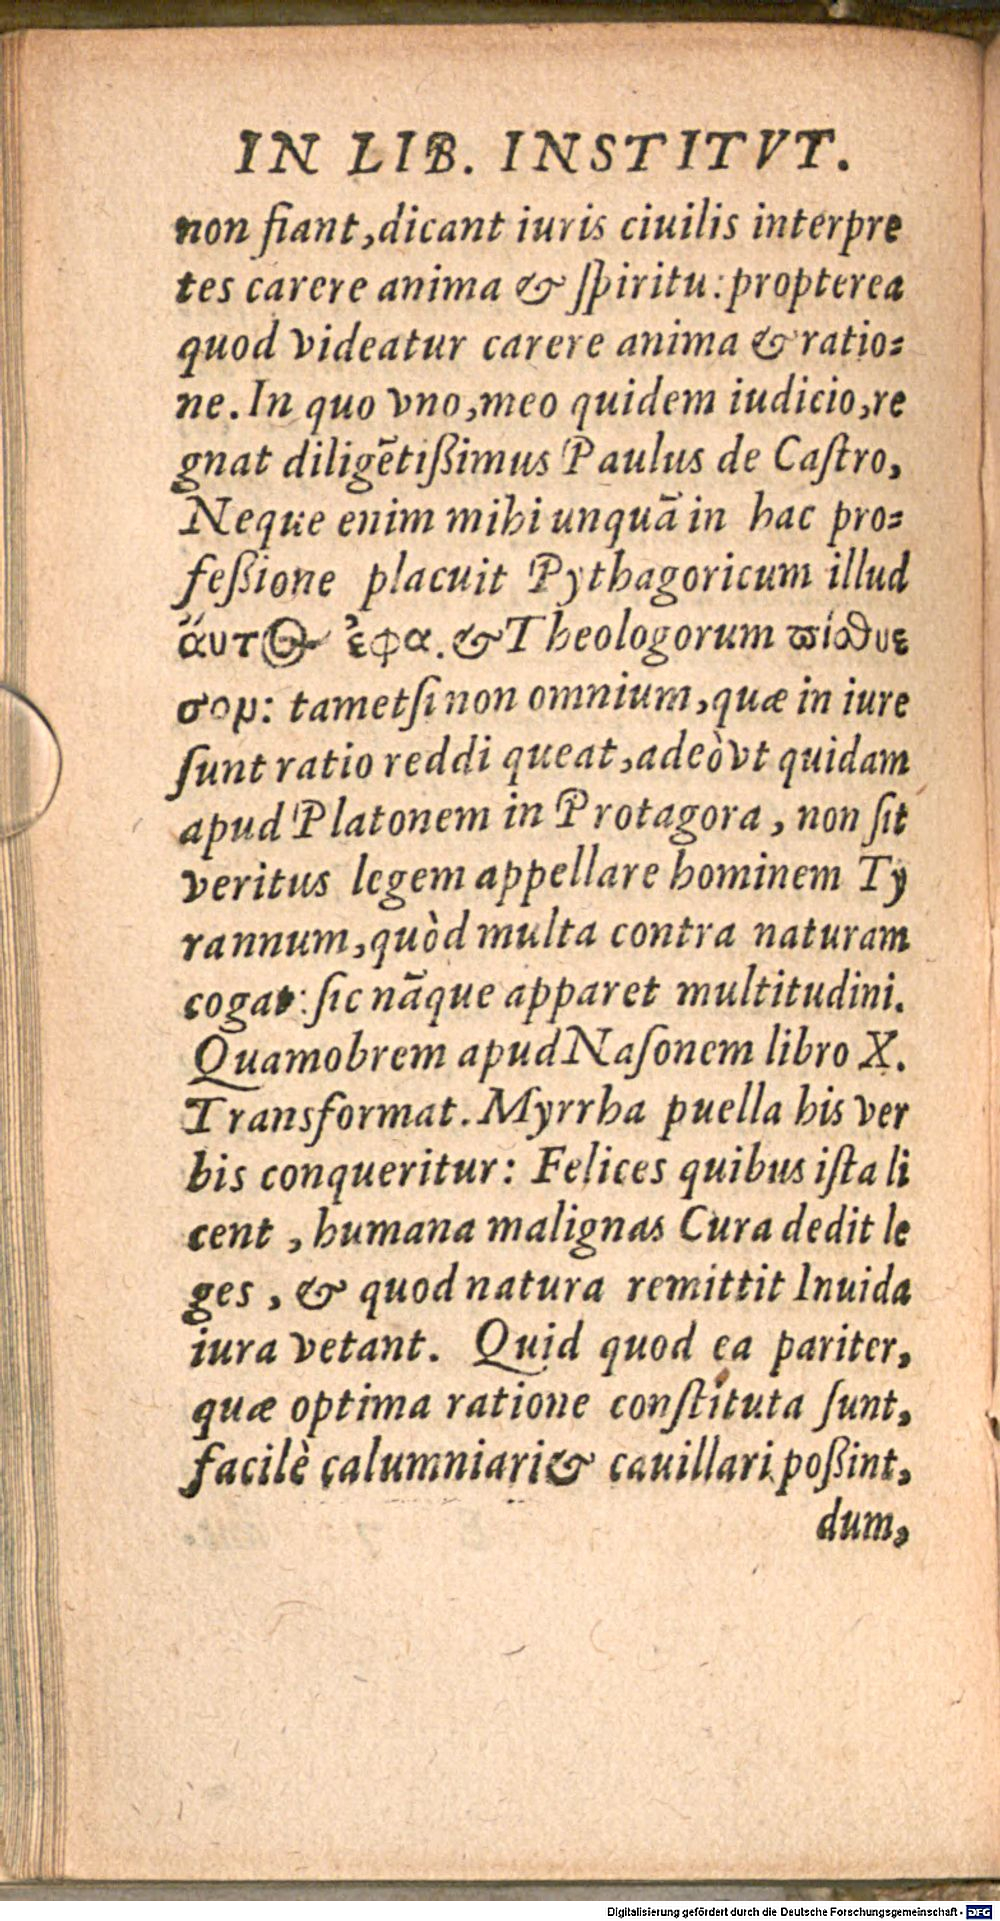 IN LIB. INSTITVT.
non fiant, dicant iuris ciuilis interpre
tes carere anima & ſpiritu: propterea
quod videatur carere anima & ratio=
ne. In quo vno, meo quidem iudicio, re
gnat diligẽtißimus Paulus de Caſtro,
Neque enim mihi unquã in hac pro=
feßione placuit Pythagoricum illud
ἄυτος ἔφα. & Theologorum ϖίσϑυε
σομ: tametſi non omnium, quæ in iure
ſunt ratio reddi queat, adeò vt quidam
apud Platonem in Protagora, non ſit
veritus legem appellare hominem Ty
rannum, quòd multa contra naturam
cogat: ſic nãque apparet multitudini.
Quamobrem apud Naſonem libro X.
Transformat. Myrrha puella his ver
bis conqueritur: Felices quibus iſta li
cent, humana malignas Cura dedit le
ges, & quod natura remittit Inuida
iura vetant. Quid quod ea pariter,
quæ optima ratione conſtituta ſunt,
facilè calumniari & cauillari poßint,
dum,
Digitalisierung gefördert durch die Deutsche Forschungsgemeinschaft - DFG